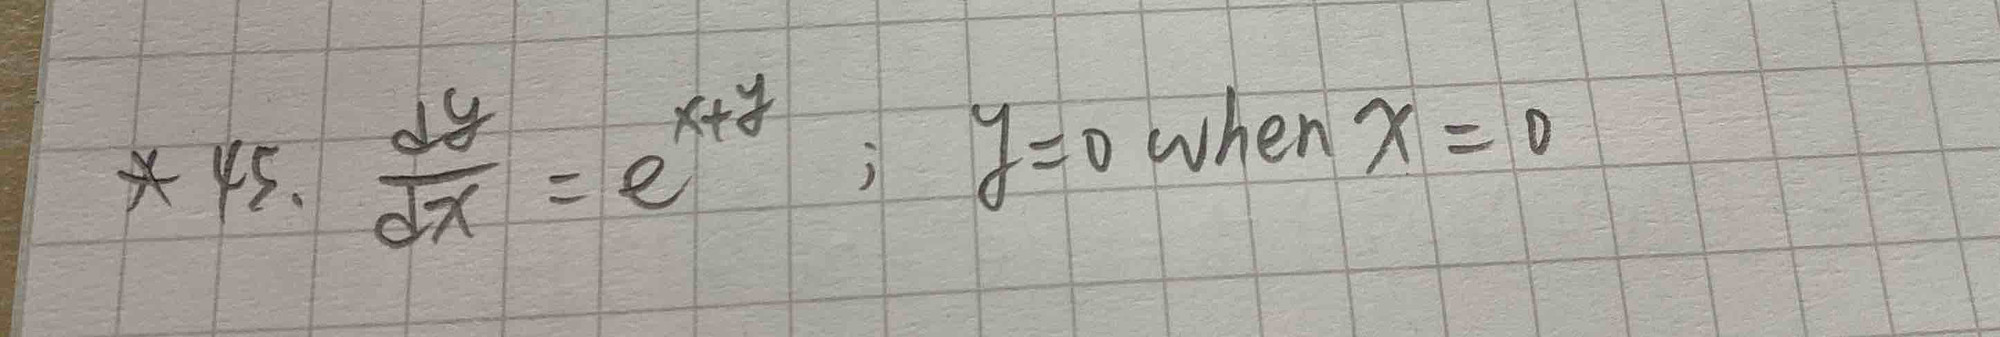 * 45. dy/dx = e^{x+y} ; y=0 when x=0